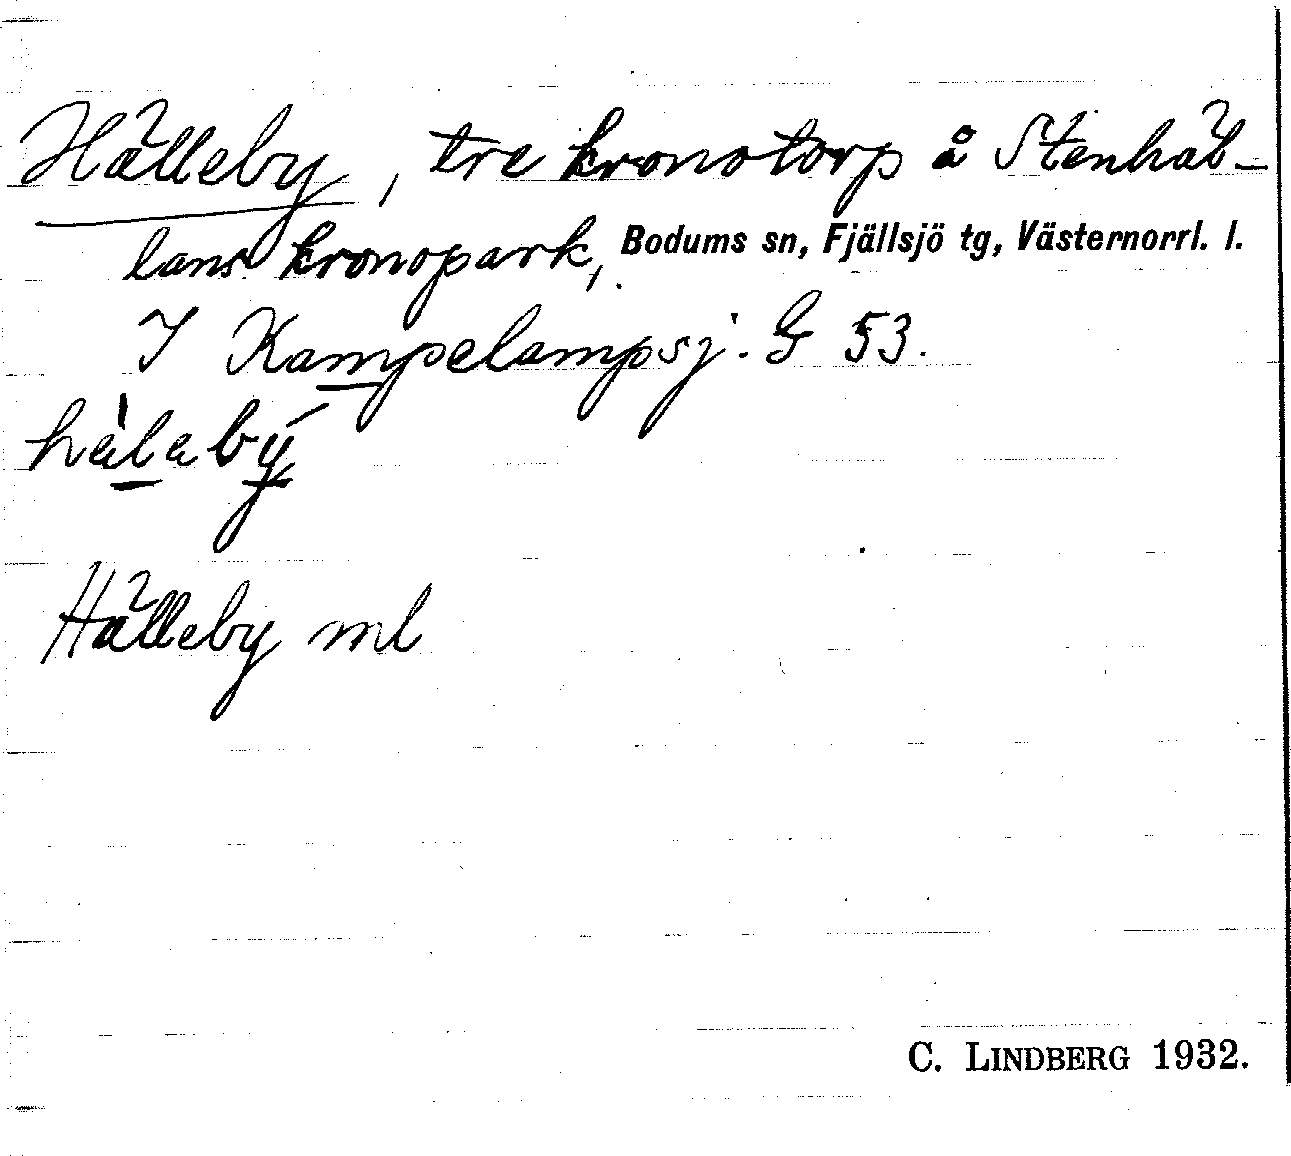 Hälleby, tre kronotorp å Stenhäb-
lans kronopark, Bodums sn, Fjällsjö tg, Västernorrl. l.
I Kampelampsj. G 53.
hèlabý
Hälleby ml
C. LINDBERG 1932.